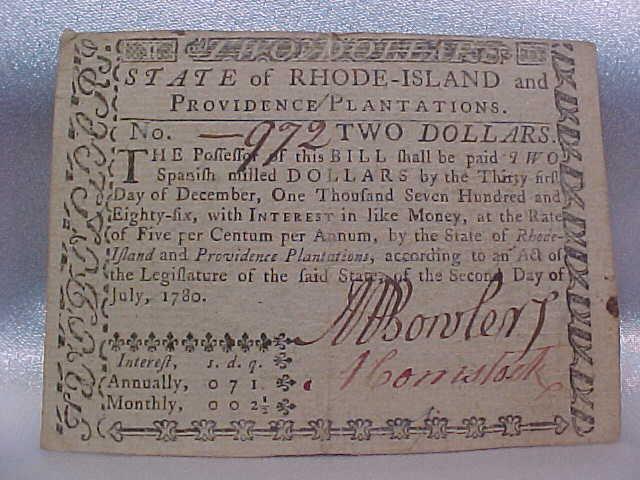 TWO DOLLARS
STATE of RHODE-ISLAND and
PROVIDENCE PLANTATIONS.
No. 972 TWO DOLLARS.
THE Poſſeſſor of this BILL ſhall be paid TWO
Spaniſh milled DOLLARS by the Thirty-firſt
Day of December, One Thouſand Seven Hundred and
Eighty-ſix, with INTEREST in like Money, at the Rate
of Five per Centum per Annum, by the State of Rhode-
Iſland and Providence Plantations, according to an Act of
the Legiſlature of the ſaid State, of the Second Day of
July, 1780.
Bowler
J Comstock
Intereſt, s. d. q.
Annually, 0 7 1.
Monthly, 0 0 2½